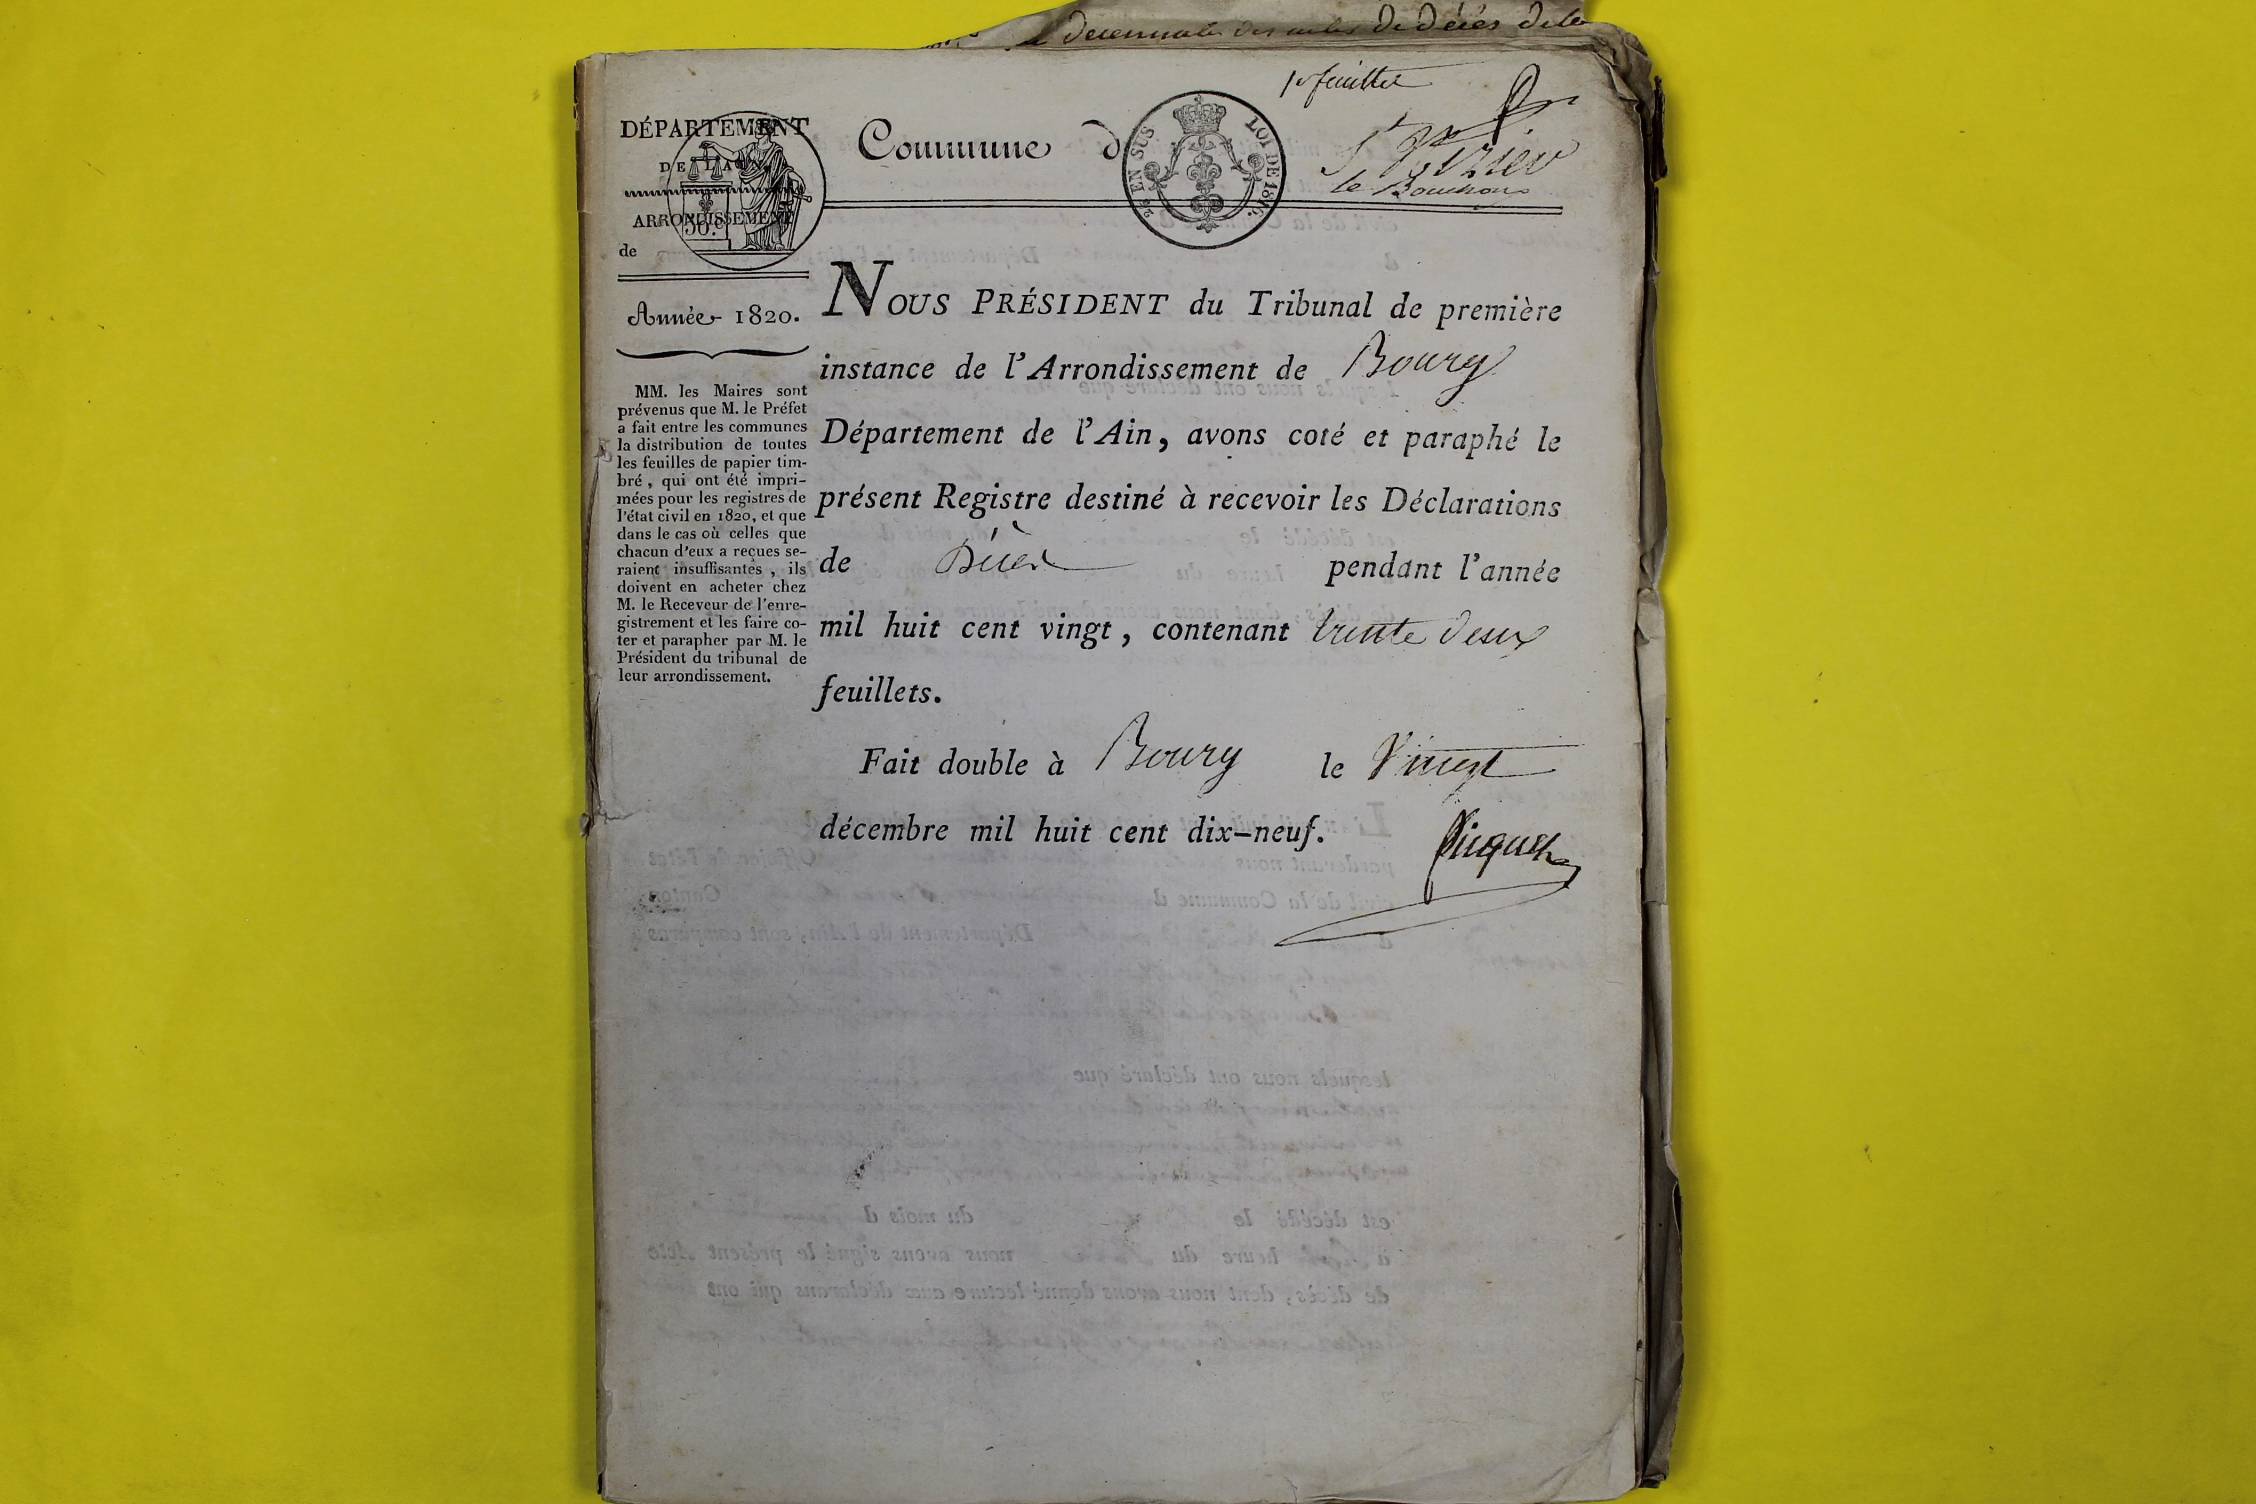 décennale des actes de décès de la
1er feuillet
DÉPARTEMENT
DE L'AIN
ARRONDISSEMENT
50.c
de
Commune d
25 EN SUS
LOI DE 1816.
St Trivier
Année 1820.
MM. les Maires sont
prévenus que M. le Préfet
a fait entre les communes
la distribution de toutes
les feuilles de papier tim-
bré, qui ont été impri-
mées pour les registres de
l'état civil en 1820, et que
dans le cas où celles que
chacun d'eux a reçues se-
raient insuffisantes, ils
doivent en acheter chez
M. le Receveur de l'enre-
gistrement et les faire co-
ter et parapher par M. le
Président du tribunal de
leur arrondissement.
NOUS PRÉSIDENT du Tribunal de première
instance de l'Arrondissement de Bourg
Département de l'Ain, avons coté et paraphé le
présent Registre destiné à recevoir les Déclarations
de Décès pendant l'année
mil huit cent vingt, contenant trente deux
feuillets.
Fait double à Bourg le Vingt
décembre mil huit cent dix-neuf.